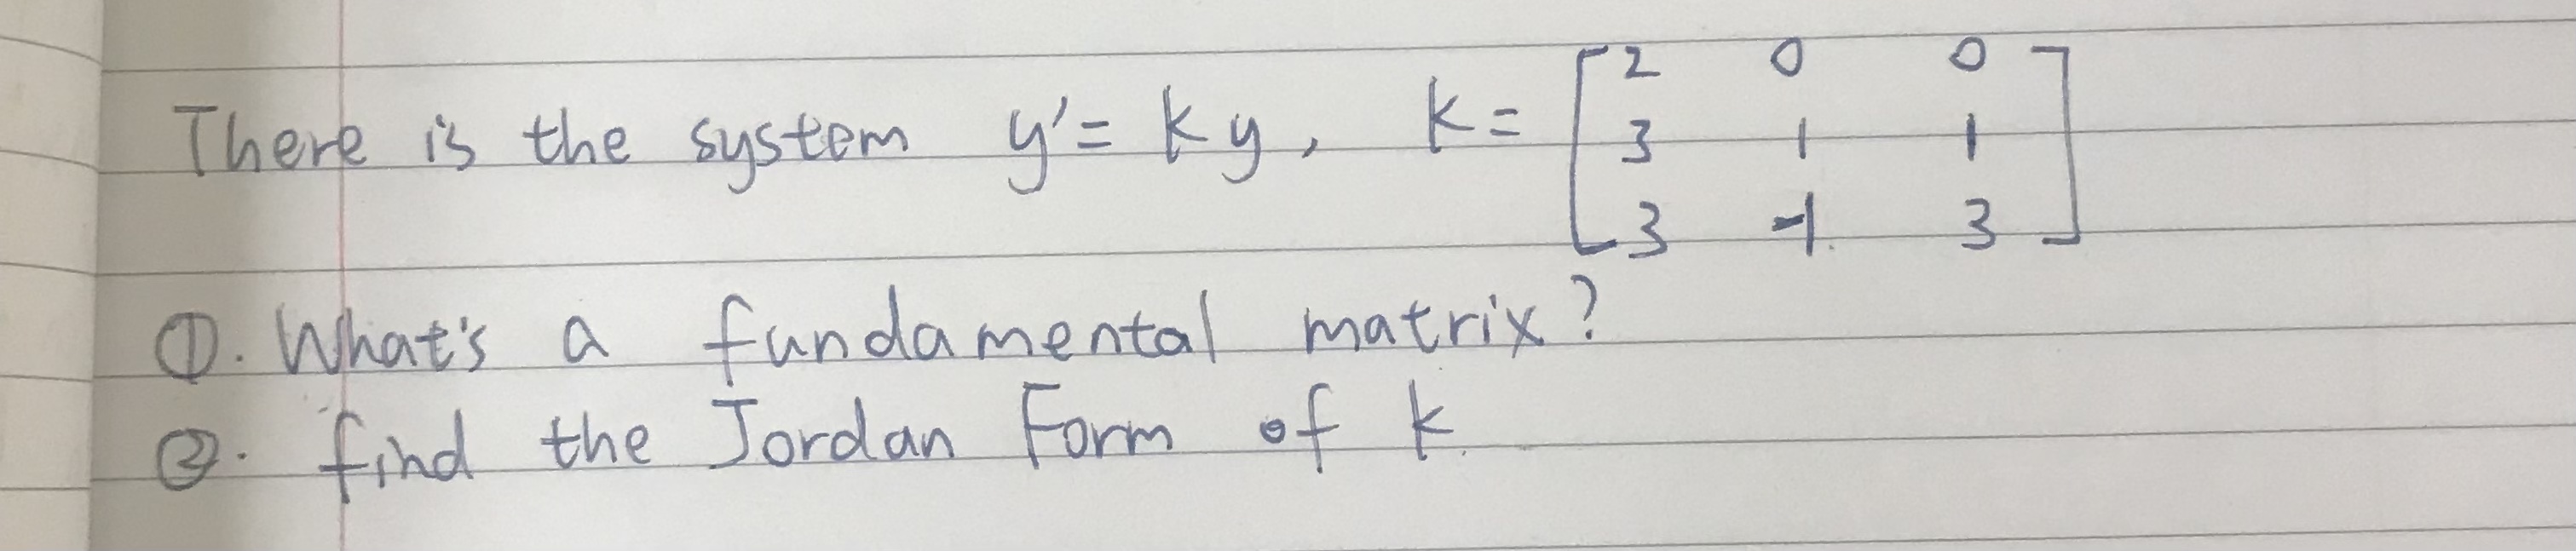 There is the system y' = ky, k = [2 0 0
3 1 1
3 -1 3]
①. What's a fundamental matrix?
②. find the Jordan Form of k.